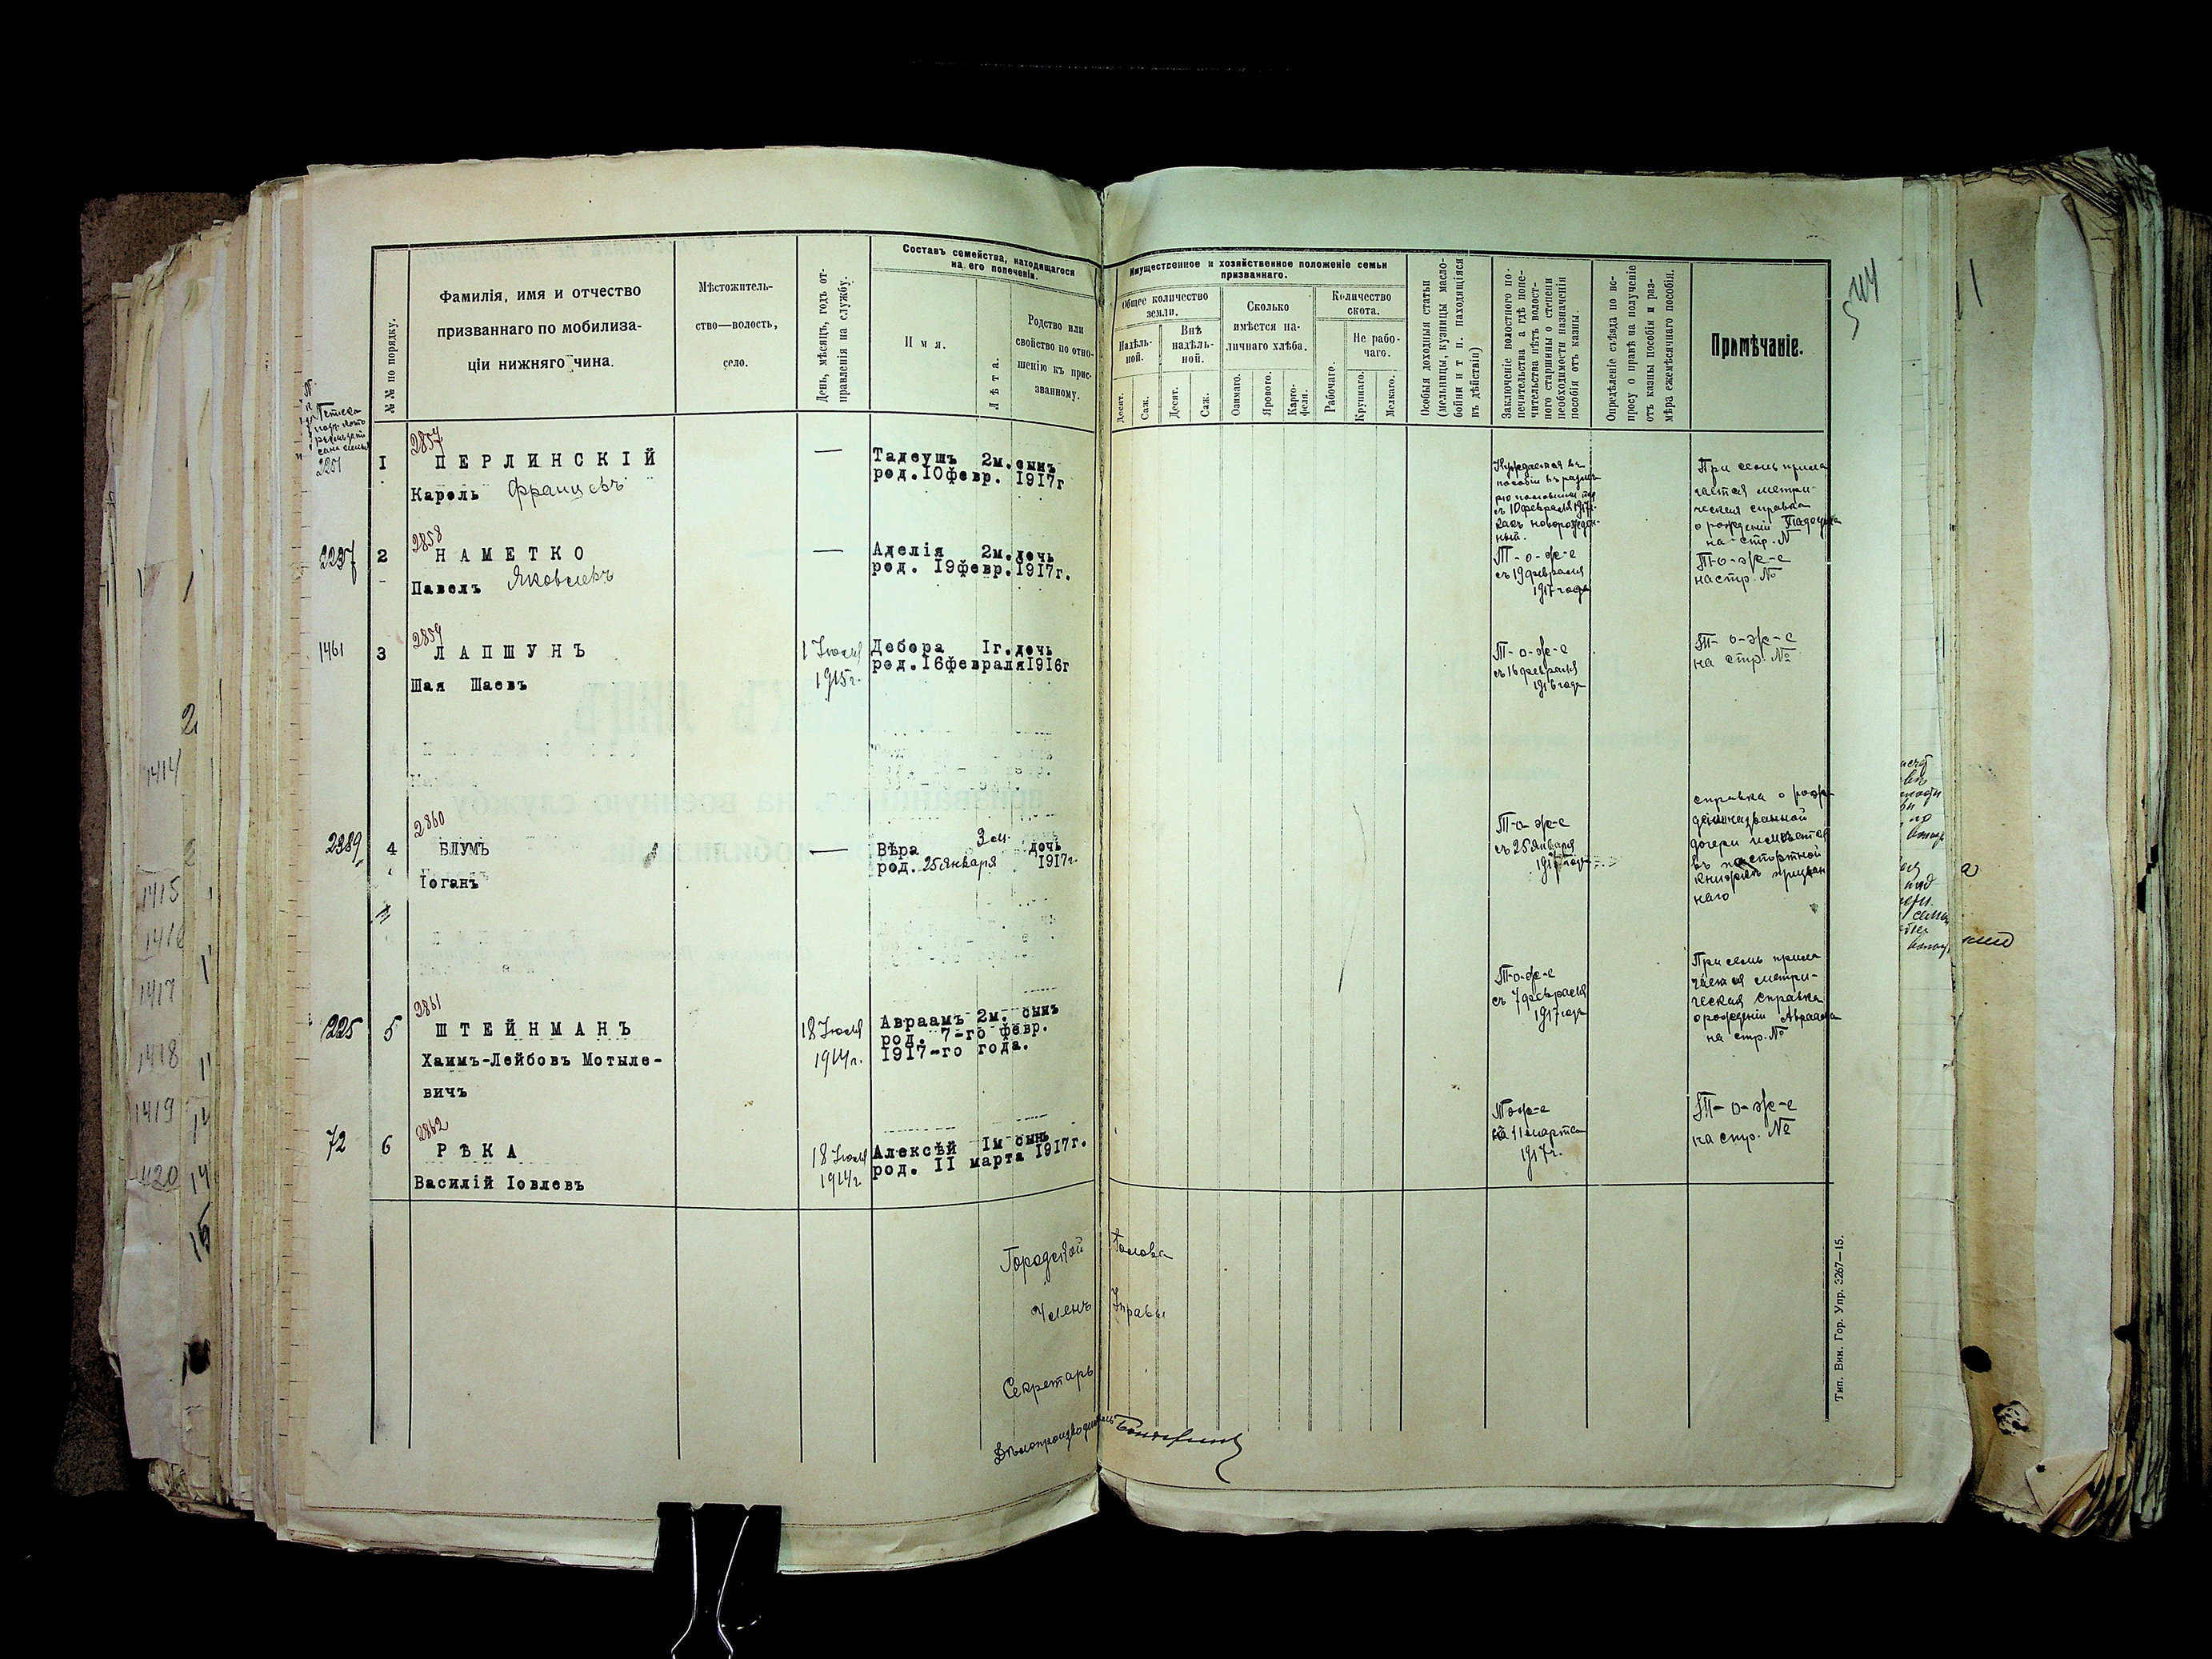 №№ по порядку.
Фамилія, имя и отчество
призваннаго по мобилиза-
ціи нижняго чина.
Мѣстожитель-
ство—волость,
село.
День, мѣсяцъ, годъ от-
правленія на службу.
Составъ семейства, находящагося
на его попеченіи.
Имя.
Лѣта.
Родство или
свойство по отно-
шенію къ приз-
званному.
Имущественное и хозяйственное положеніе семьи
призваннаго.
Общее количество
земли.
Надѣль-
ной.
Внѣ
надѣль-
ной.
Десят.
Саж.
Десят.
Саж.
Сколько
имѣется на-
личнаго хлѣба.
Озимаго.
Яроваго.
Карто-
феля.
Количество
скота.
Рабочаго.
Не рабо-
чаго.
Крупнаго.
Мелкаго.
Особыя доходныя статьи
(мельницы, кузницы масло-
бойни и т п. находящіяся
въ дѣйствіи)
Заключеніе волостного по-
печительства а гдѣ попе-
чительства нѣтъ волост-
ного старшины о степени
необходимости назначенія
пособія отъ казны.
Опредѣленіе съѣзда по во-
просу о правѣ на полученіе
отъ казны пособія и раз-
мѣра ежемѣсячнаго пособія.
Примѣчаніе.
2251
1
2857
ПЕРЛИНСКІЙ
Кароль Францевъ
—
Тадеушъ 2м. сынъ
род. 10февр. 1917г
Нуждается въ
пособіи въ
съ 10 февраля 1917г.
какъ новорожден-
ный.
При семъ прила
гается метри-
ческая справка
о рожденіи Тадеуша
на стр. №
2237
2
2858
НАМЕТКО
Павелъ Яковлевъ
—
Аделія 2м. дочь
род. 19февр. 1917г.
Т-о-ж-е
съ 19 февраля
1917 года
Т-о-ж-е
на стр. №
1461
3
2859
ЛАПШУНЪ
Шая Шаевъ
1 Іюля
1915г.
Дебора 1г. дочь
род. 16февраля1916г
Т-о-ж-е
съ 16 февраля
1916 года
Т-о-ж-е
на стр. №
2389
4
2860
БЛУМЪ
Іоганъ
—
Вѣра 3 м. дочь
род. 25 Января 1917г.
Т-о-ж-е
съ 25 Января
1917 года
справка о рож-
деніи названной
дочери имѣется
въ паспортной
книжкѣ призван
наго
225
5
2861
ШТЕЙНМАНЪ
Хаимъ-Лейбовъ Мотыле-
вичъ
18 Іюля
1914г.
Авраамъ 2м. сынъ
род. 7-го февр.
1917-го года.
Т-о-ж-е
съ 7 февраля
1917 года
При семъ прила
гается метри-
ческая справка
о рожденіи Авраама
на стр. №
72
6
2862
РѢКА
Василій Іовлевъ
18 Іюля
1914г.
Алексѣй 1м сынъ
род. 11 марта 1917г.
Тоже
11 марта
1917г.
Т-о-ж-е
на стр. №
Городской Голова
Членъ Управы
Секретарь
Дѣлопроизводитель
Тип. Вин. Гор. Упр. 3267—15.
1414
1415
1416
1417
1418
1419
1420